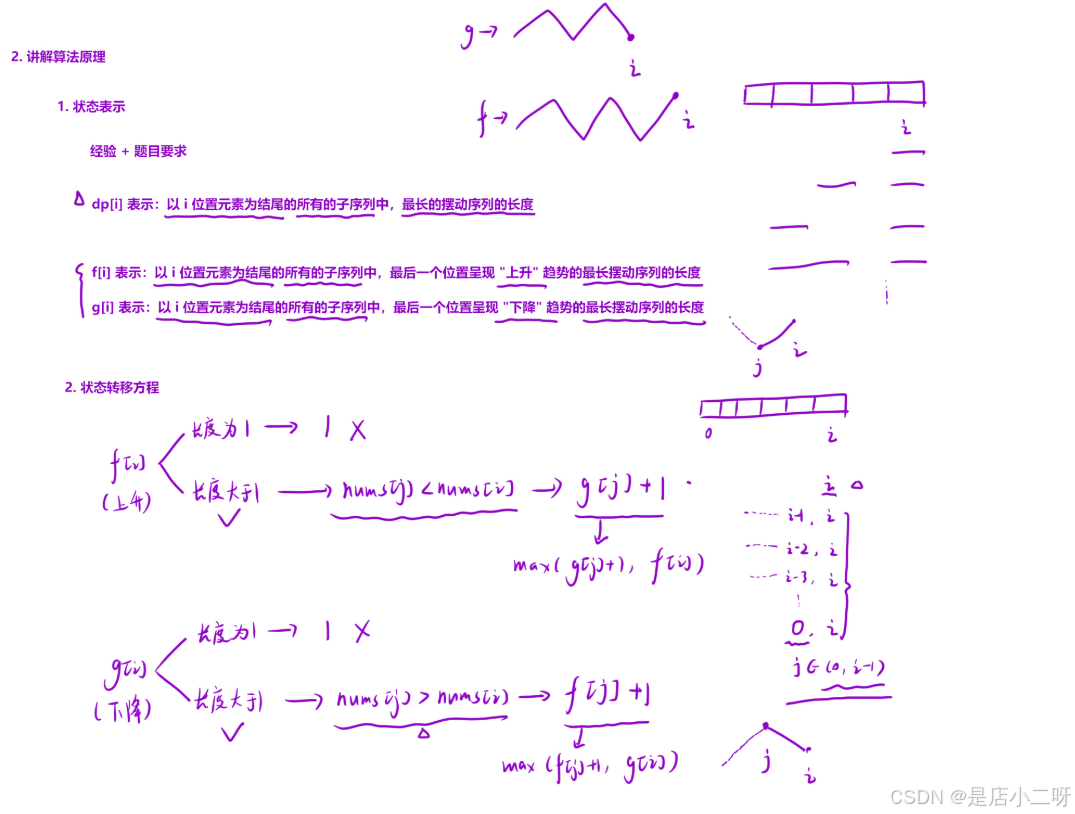 g→
i
2. 讲解算法原理
f→
i
1. 状态表示
i
经验 + 题目要求
dp[i] 表示：以 i 位置元素为结尾的所有的子序列中，最长的摆动序列的长度
f[i] 表示：以 i 位置元素为结尾的所有的子序列中，最后一个位置呈现 "上升" 趋势的最长摆动序列的长度
g[i] 表示：以 i 位置元素为结尾的所有的子序列中，最后一个位置呈现 "下降" 趋势的最长摆动序列的长度
j
i
2. 状态转移方程
0
i
长度为1 → 1 ×
f[i]
(上升)
长度大于1 → nums[j] < nums[i] → g[j]+1
max(g[j]+1, f[i])
i
i-1, i
i-2, i
i-3, i
0, i
j∈(0, i-1)
长度为1 → 1 ×
g[i]
(下降)
长度大于1 → nums[j] > nums[i] → f[j]+1
max(f[j]+1, g[i])
j
i
CSDN @是店小二呀